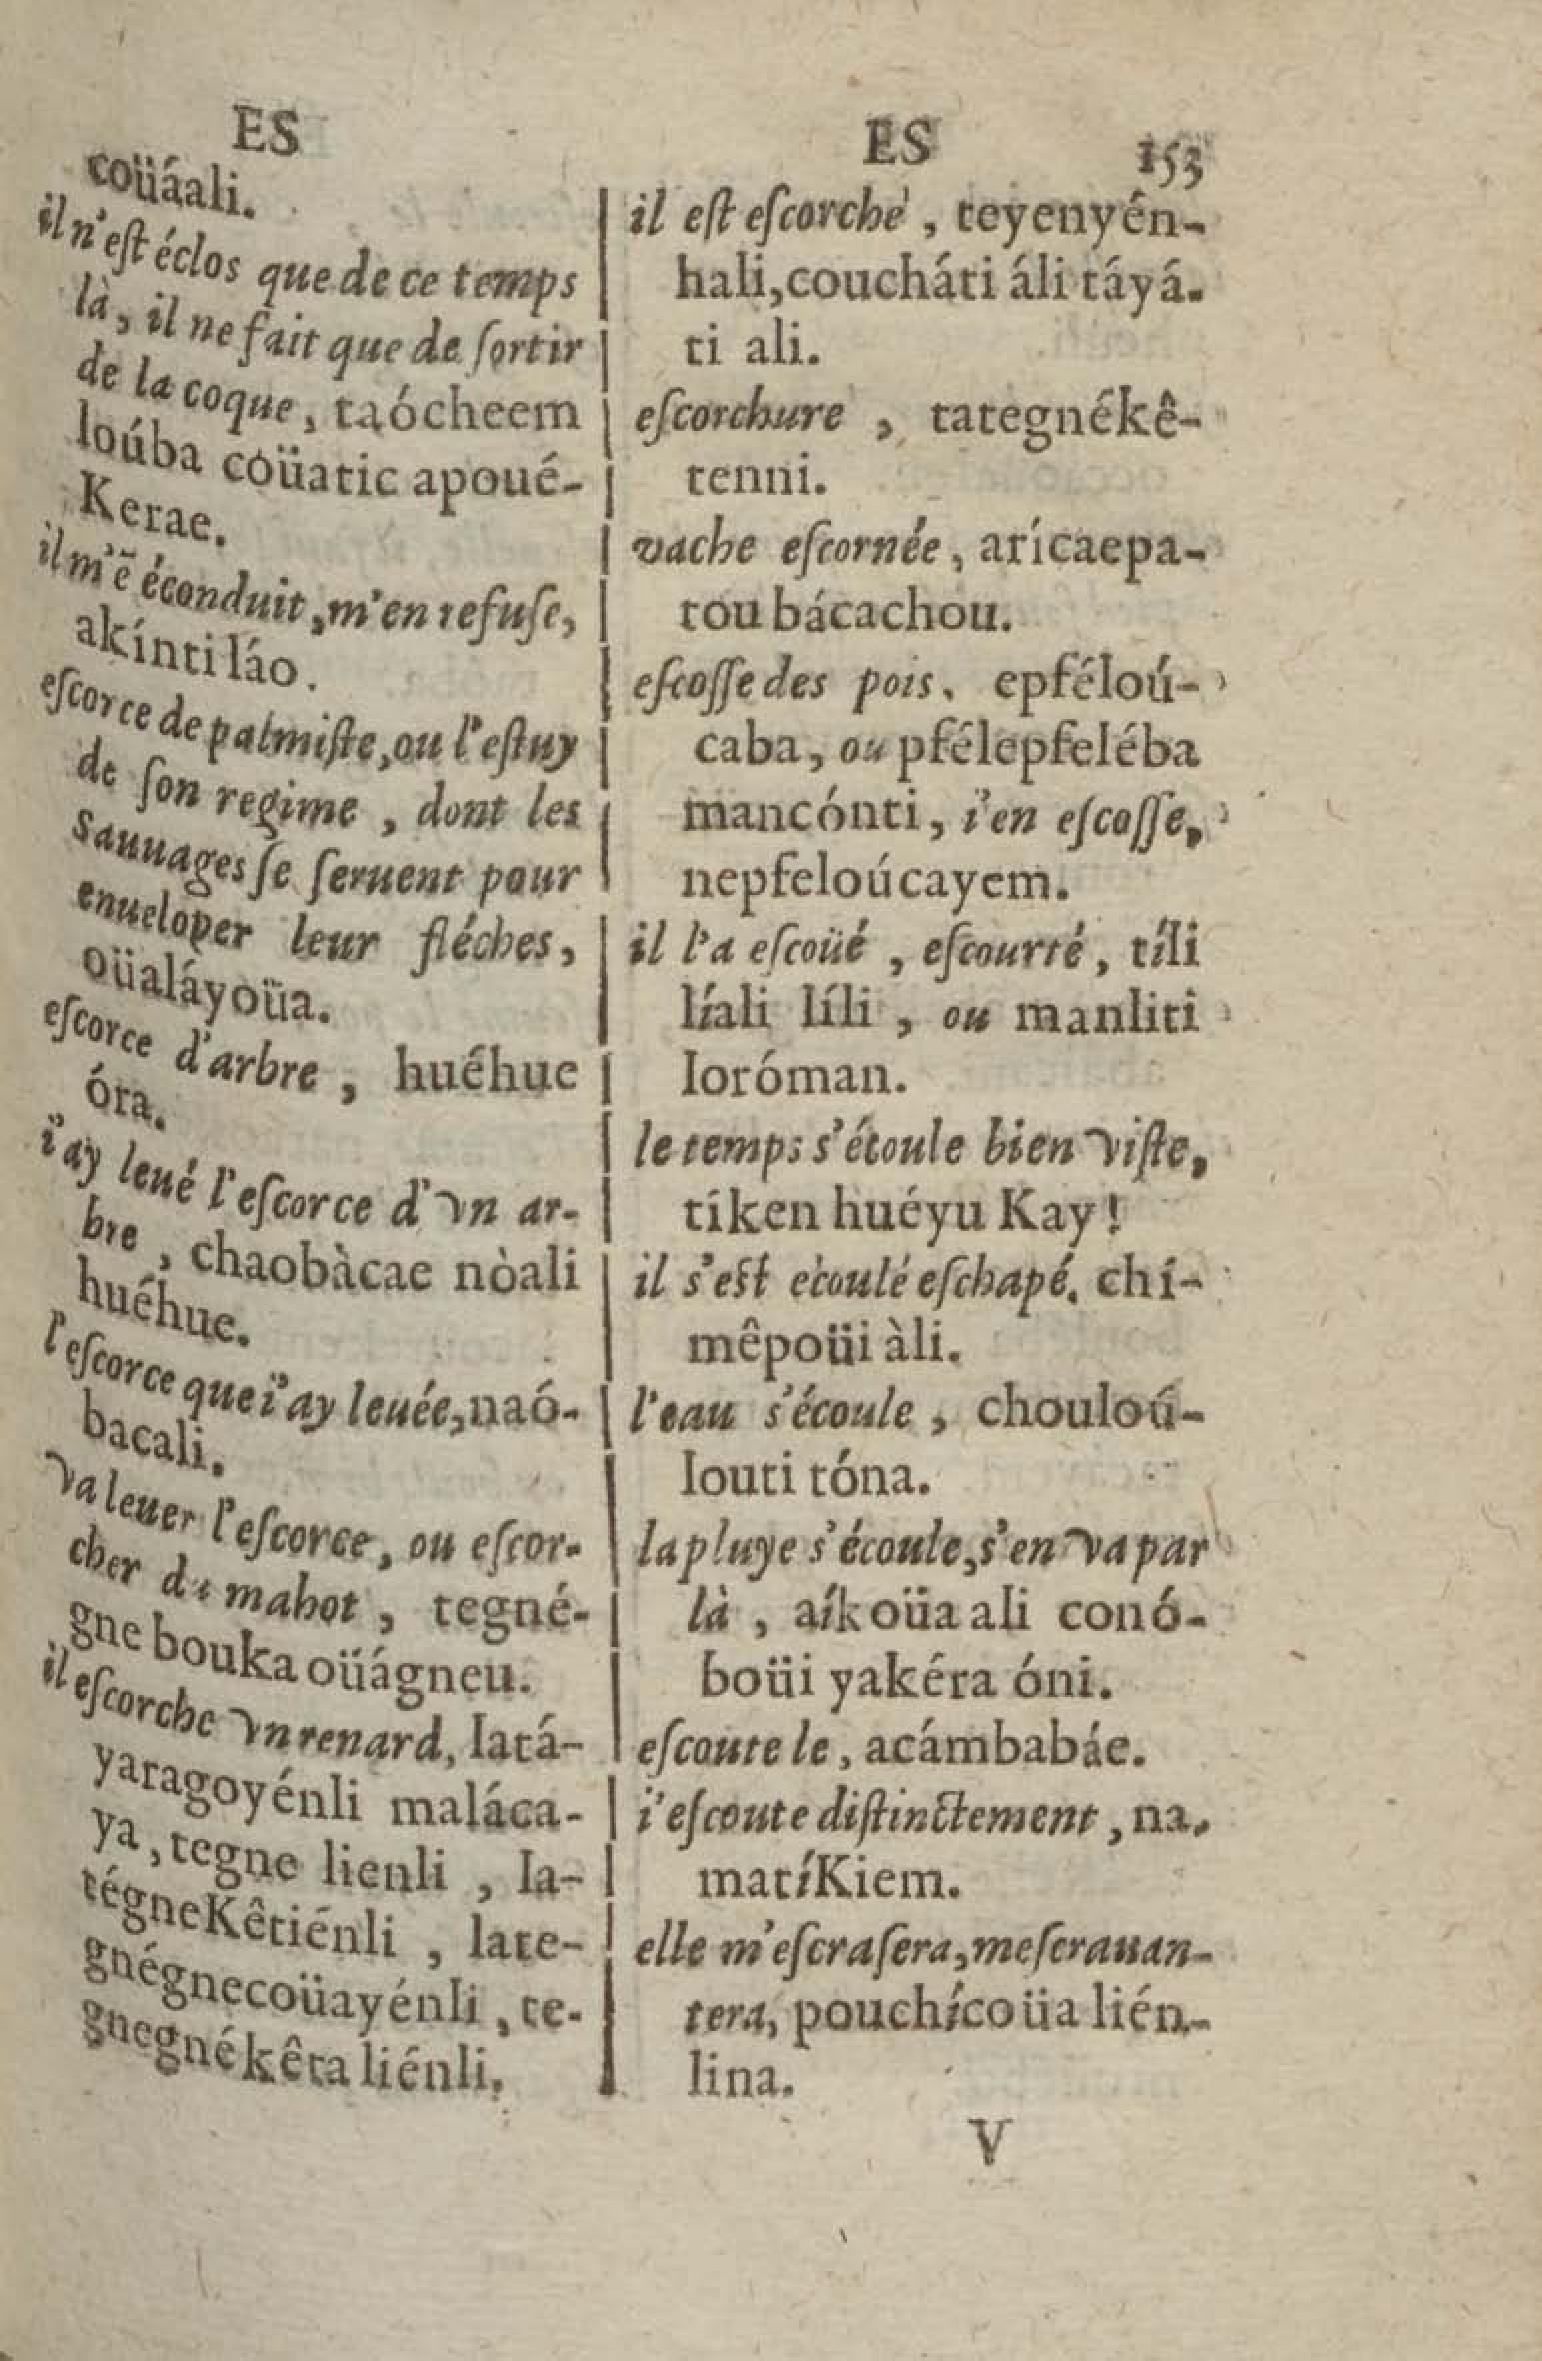 ES
coüáali.
il n'eſt éclos que de ce temps
là, il ne fait que de ſortir
de la coque, taócheem
loúba coüatic apoué-
Kerae.
il m'ẽ éconduit, m'en refuſe,
akínti láo.
eſcorce de palmiſte, ou l'eſtuy
de ſon regime, dont les
Sauuages ſe ſeruent pour
enueloper leur fléches,
oüaláyoüa.
eſcorce d'arbre, huéhue
óra.
i'ay leué l'eſcorce d'vn ar-
bre, chaobàcae nòali
huéhue.
l'eſcorce que i'ay leuée, naó-
bacali.
va leuer l'eſcorce, ou eſcor-
cher du mahot, tegné-
gne bouka oüágneu.
il eſcorche vn renard, latá-
yaragoyénli maláca-
ya, tegne lienli, la-
tégneKêtiénli, late-
gnégnecoüayénli, te-
gnegnékêta liénli.
ES 153
il eſt eſcorché, teyenyén-
hali, coucháti áli táyá-
ti ali.
eſcorchure, tategnékê-
tenni.
vache eſcornée, arícaepa-
tou bácachou.
eſcoſſe des pois, epféloú-
caba, ou pfélepfeléba
mancónti, i'en eſcoſſe,
nepfeloúcayem.
il l'a eſcoüé, eſcourté, tíli
líali líli, ou manliti
loróman.
le temps s'écoule bien viſte,
tiken huéyu Kay!
il s'eſt ecoulé eſchapé, chí-
mêpoüi àli.
l'eau s'écoule, chouloú-
louti tóna.
la pluye s'écoule, s'en va par
là, aíkoüa ali conó-
boüi yakéra óni.
eſcoute le, acámbabáe.
i'eſcoute diſtinctement, na-
matíKiem.
elle m'eſcraſera, meſcrauan-
tera, pouchícoüa lién-
lina.
V